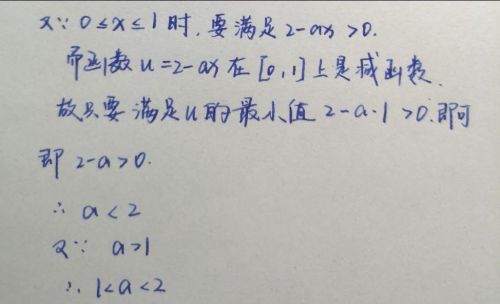 又∵ 0≤x≤1时,要满足2-ax>0.
而函数u=2-ax在[0,1]上是减函数.
故只要满足u的最小值2-a·1>0.即可
即2-a>0.
∴ a<2
又∵ a>1
∴ 1<a<2